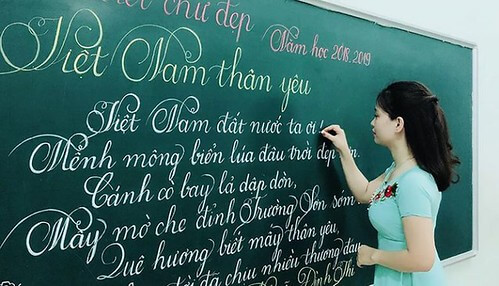 viết chữ đẹp
Năm học 2018-2019
Việt Nam thân yêu
Việt Nam đất nước ta ơi!
Mênh mông biển lúa đâu trời đẹp
Cánh cò bay lả dập dờn,
Mây mờ che đỉnh Trường Sơn sớm
Quê hương biết mấy thân yêu,
đời đã chịu nhiều thương đau
Đình Thi